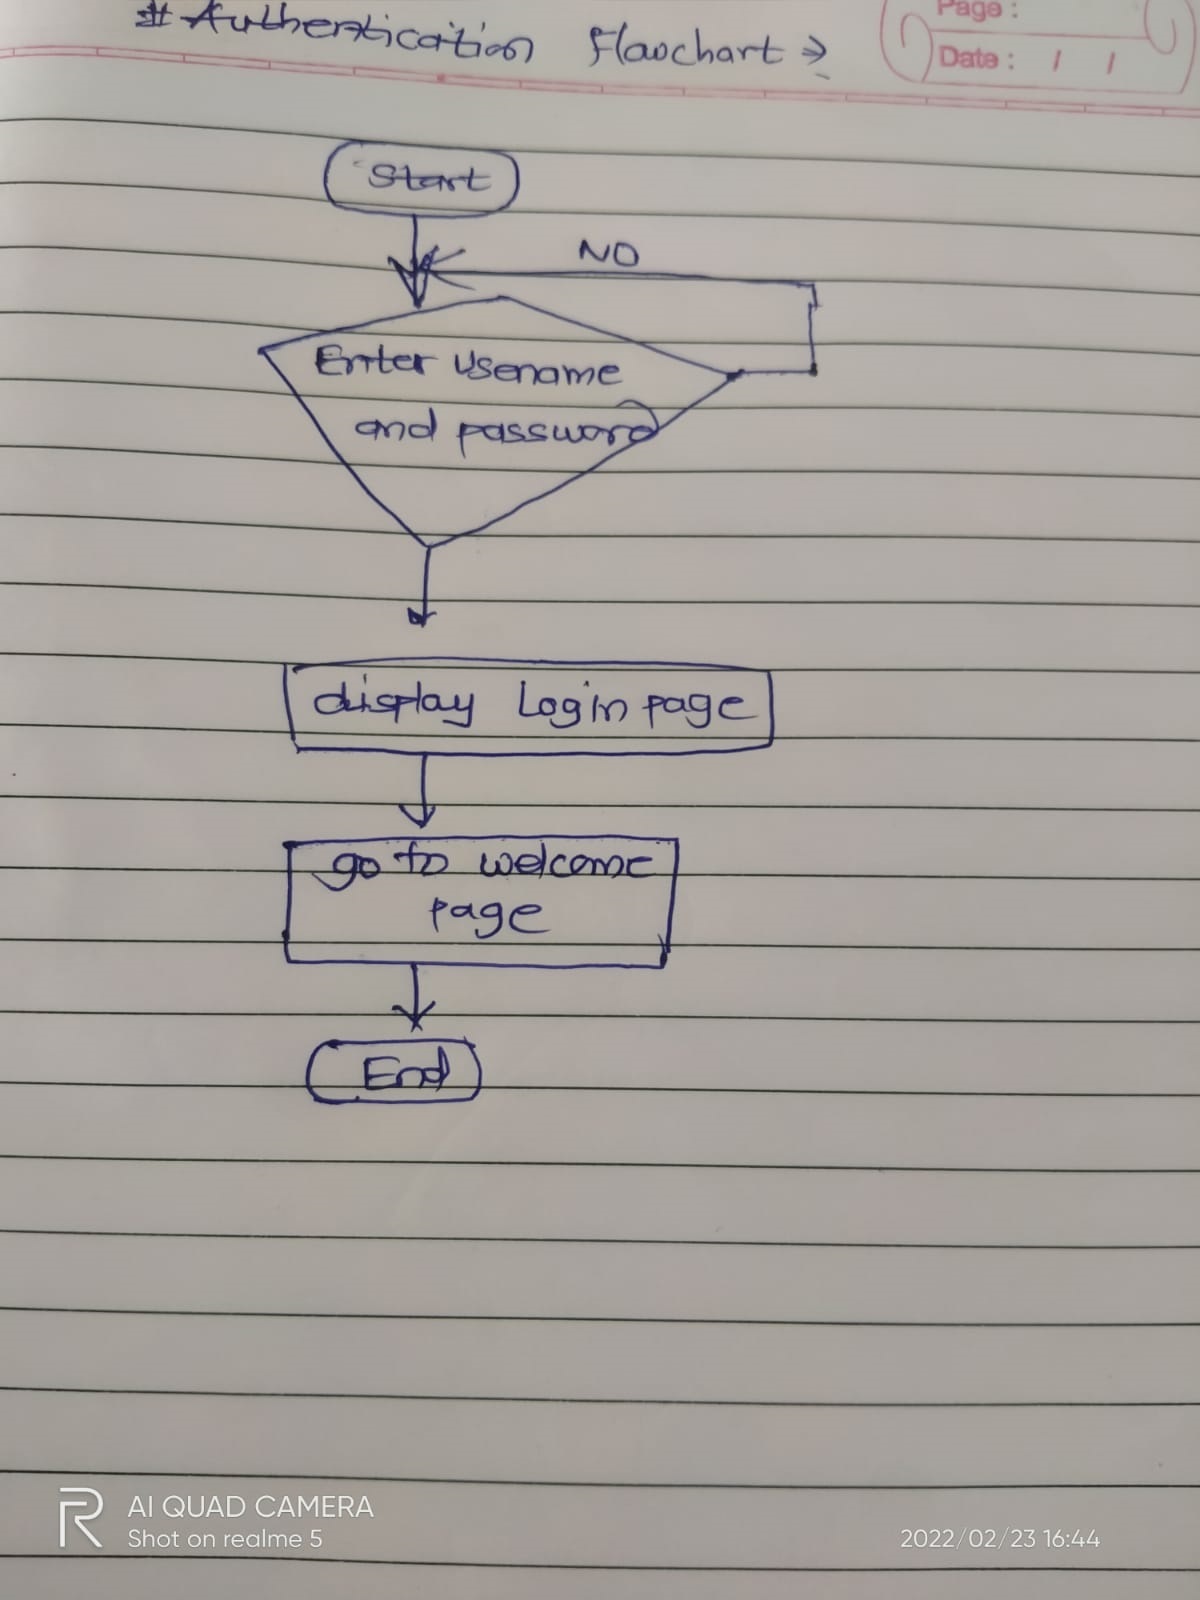 # Authentication Flowchart →
Page :
Date : / /
Start
NO
Enter Usename
and password
display Login page
go to welcome
page
End
R
AI QUAD CAMERA
Shot on realme 5
2022/02/23 16:44